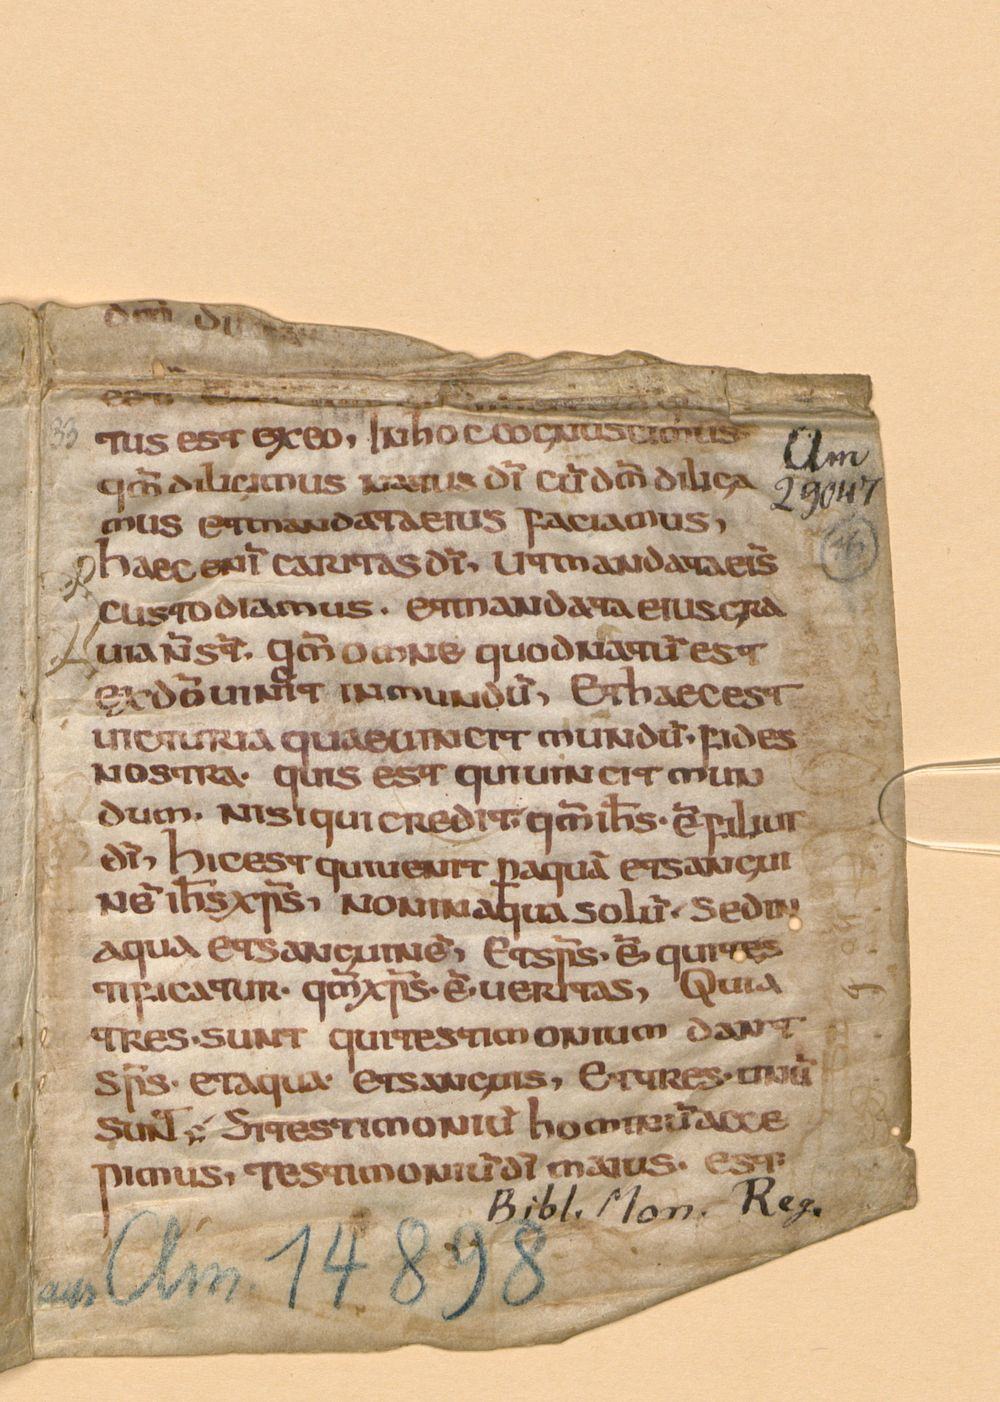 dm̄
33
tus est exeo, In hoc cognuscimus
qm̄ diligimus natus dī cū dm̄ diliga
mus et mandata eius faciamus,
haec enī caritas dī, ut mandata eīs
custodiamus. et mandata eius gra
uia n̄ st̄. qm̄ omne quod natū est
ex dō uinit in mundū, Et haec est
uicturia quae uincit mundū. fides
nostra. quis est qui uincit mun
dum. nisi qui credit. qm̄ ih̄s. ē filiur
dī, hic est qui uenit p aquā et sangui
nē ih̄s xp̄s, non in aqua solū. sed in
aqua et sanguinē, Et sp̄s. ē qui tes
tificatur. qm̄ xp̄s. ē. ueritas, Quia
tres. sunt qui testimonium dant
sp̄s. et aqua et sanguis, Et tres. unū
sunt, Si testimoniū hominū acce
pimus, testimoniū dī maius. est.
Clm
29047
Bibl. Mon. Reg.
aus Clm. 14898